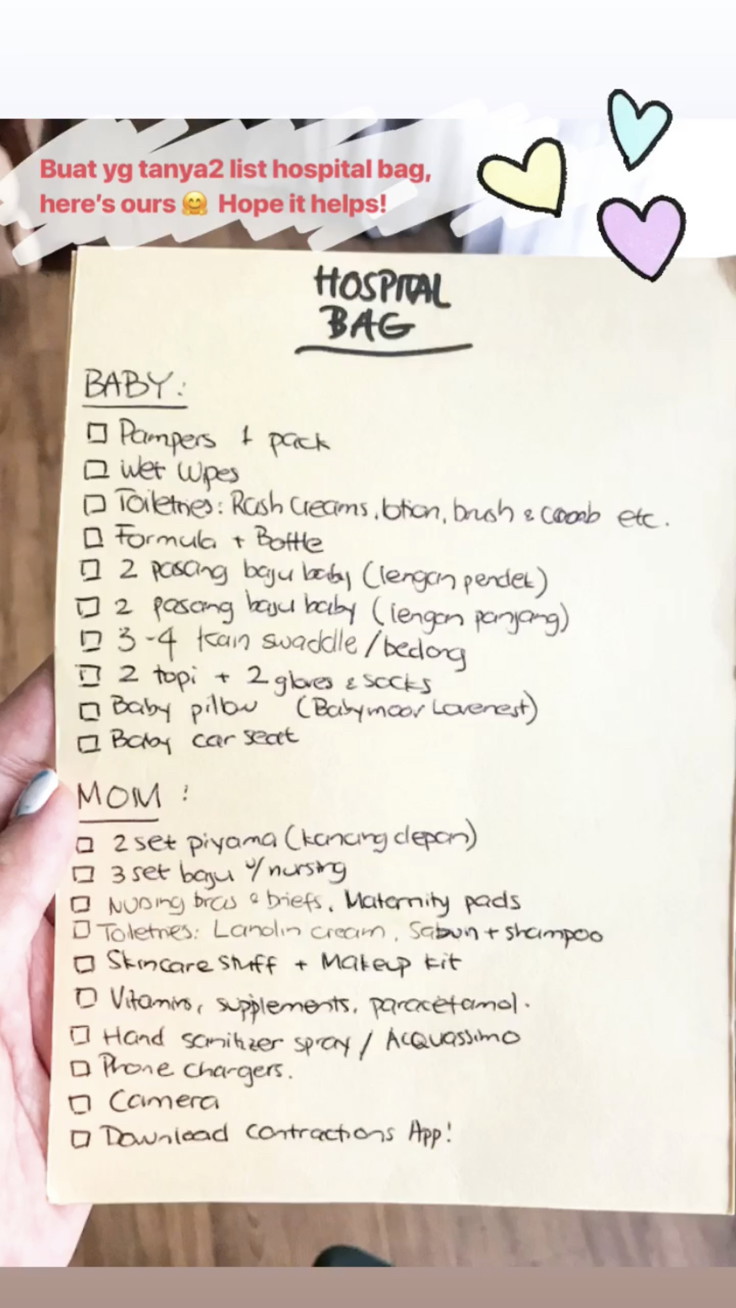 Buat yg tanya2 list hospital bag,
here's ours 🤗 Hope it helps!
HOSPITAL
BAG
BABY:
Pampers 1 pack
Wet Wipes
Toiletries: Rash Creams, lotion, brush & comb etc.
Formula + Bottle
2 pasang baju baby (lengan pendek)
2 pasang baju baby (lengan panjang)
3-4 kain swaddle / bedong
2 topi + 2 gloves & socks
Baby pillow (Babymoov Lovenest)
Baby car seat
MOM:
2 set piyama (kancing depan)
3 set baju u/ nursing
Nursing bras & briefs, Maternity pads
Toiletries: Lanolin cream, Sabun + shampoo
Skincare stuff + Makeup kit
Vitamins, supplements, paracetamol.
Hand sanitizer spray / Acquassimo
Phone chargers.
Camera
Download contractions App!